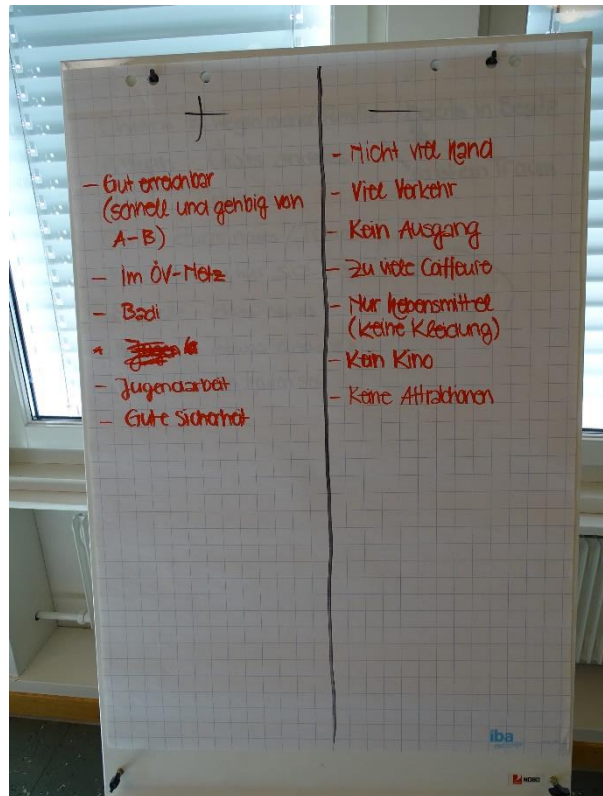 +
- Gut erreichbar
(schnell und gehbig von
A-B)
- Im ÖV-Netz
- Badi
- Jugendarbeit
- Gute Sicherheit
—
- Nicht viel Land
- Viel Verkehr
- Kein Ausgang
- Zu viele Coiffeure
- Nur Lebensmittel
(Keine Kleidung)
- Kein Kino
- Keine Attraktionen
iba
NOBO